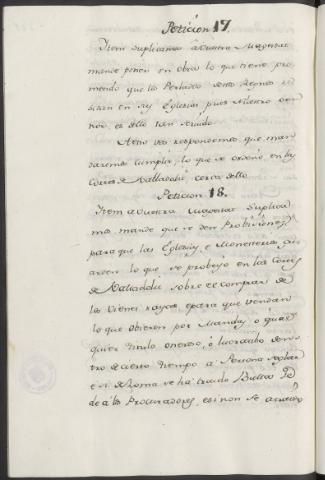 Peticion 17.
Item suplicamos a Vuestra Magestad
mande poner en obra lo que tiene pro-
metido que los Perlados destos Reynos re-
siden en sus Eglesias pues Nuestro Se-
ñor es dello tan servido.
A esto vos respondemos que man-
daremos cumplir lo que se ordenó en las
Cortes de Valladolid cerca dello
Peticion 18.
Item a Vuestra Magestad suplica-
mos mande que se den Probisiones
para que las Eglesias y Monesterios, gu-
arden lo que se probeyo en las Cortes
de Valladolid sobre el comprar de
los vienes rayces e para que vendan
lo que obieren por Mandas o qual-
quier titulo oneroso, o lucrativo den-
tro de cierto tiempo a Persona seglar
e si de Roma se há traido Bulla
de á los Procuradores, e si non se a traido